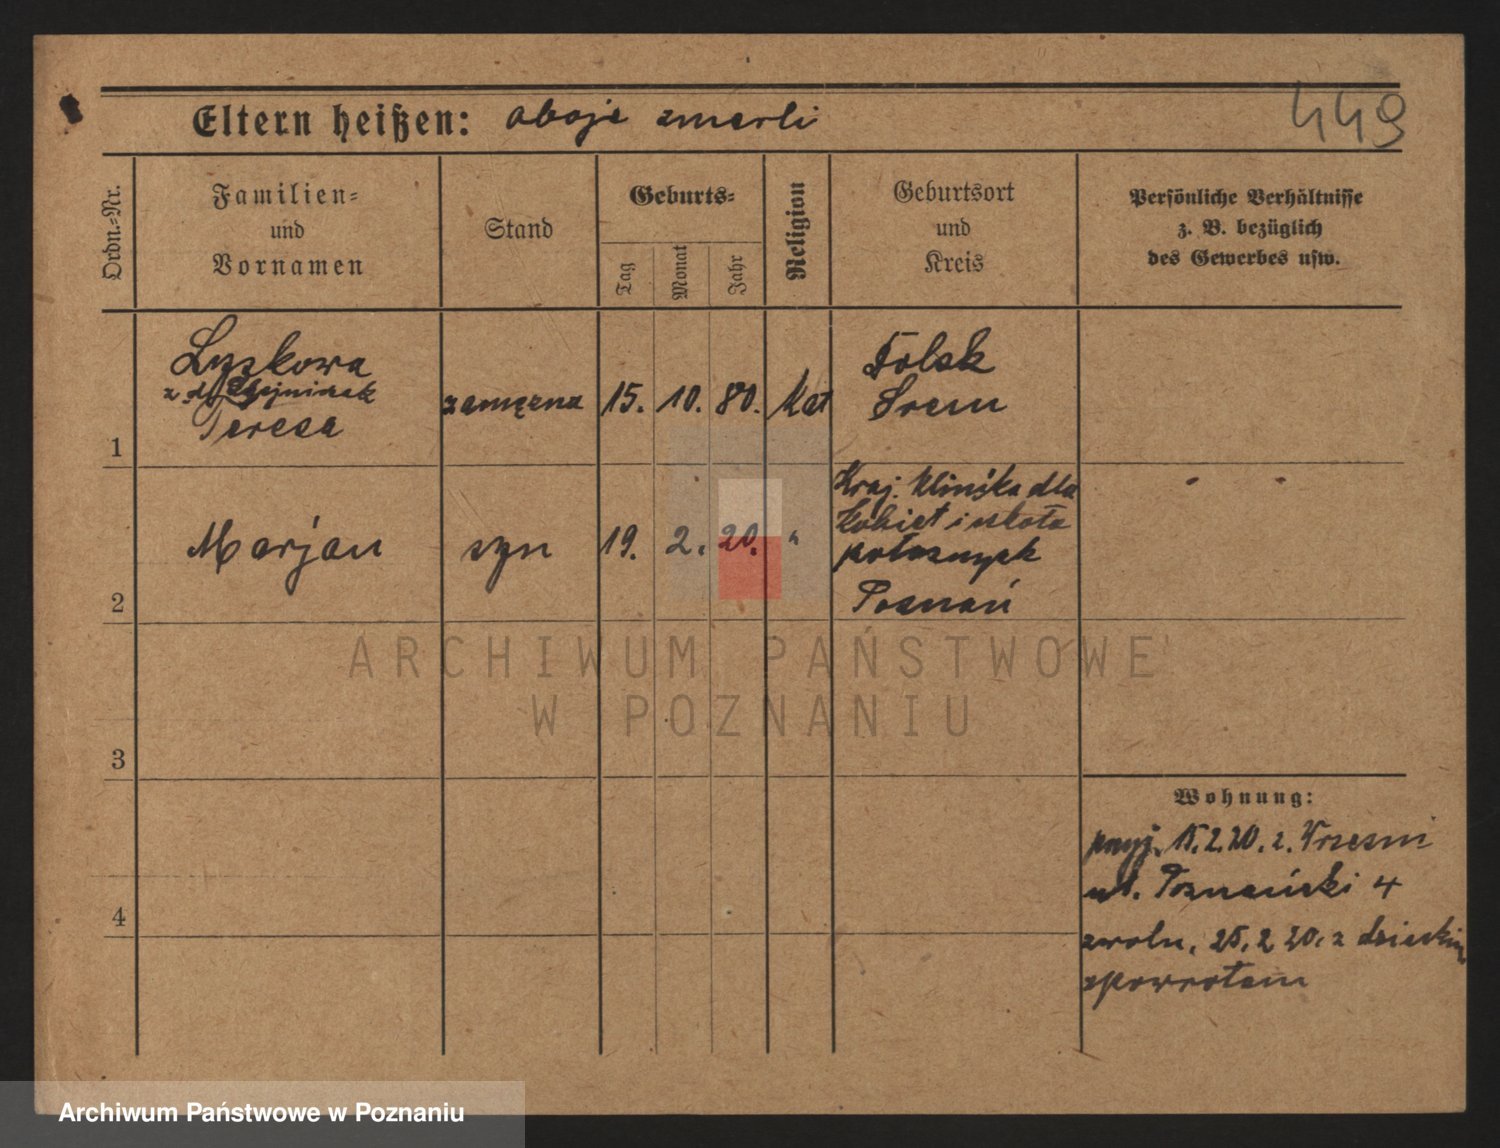 449
Eltern heißen: oboje zmarli
Ordn.-Nr.
Familien-
und
Vornamen
Stand
Geburts-
Tag
Monat
Jahr
Religion
Geburtsort
und
Kreis
Persönliche Verhältnisse
z. B. bezüglich
des Gewerbes usw.
1
Lyskowa
z d.
Teresa
zamężna
15. 10. 80.
Kat
Dolsk
Śrem
2
Marjan
syn
19. 2. 20.
"
Kraj. Klinika dla
Kobiet i szkoła
położnych
Poznań
3
4
Wohnung:
przyj. 15.2.20. z Wrześni
ul. Poznański 4
zwoln. 25.2.20. z dzieckiem
zpowrotem
ARCHIWUM PAŃSTWOWE
W POZNANIU
Archiwum Państwowe w Poznaniu